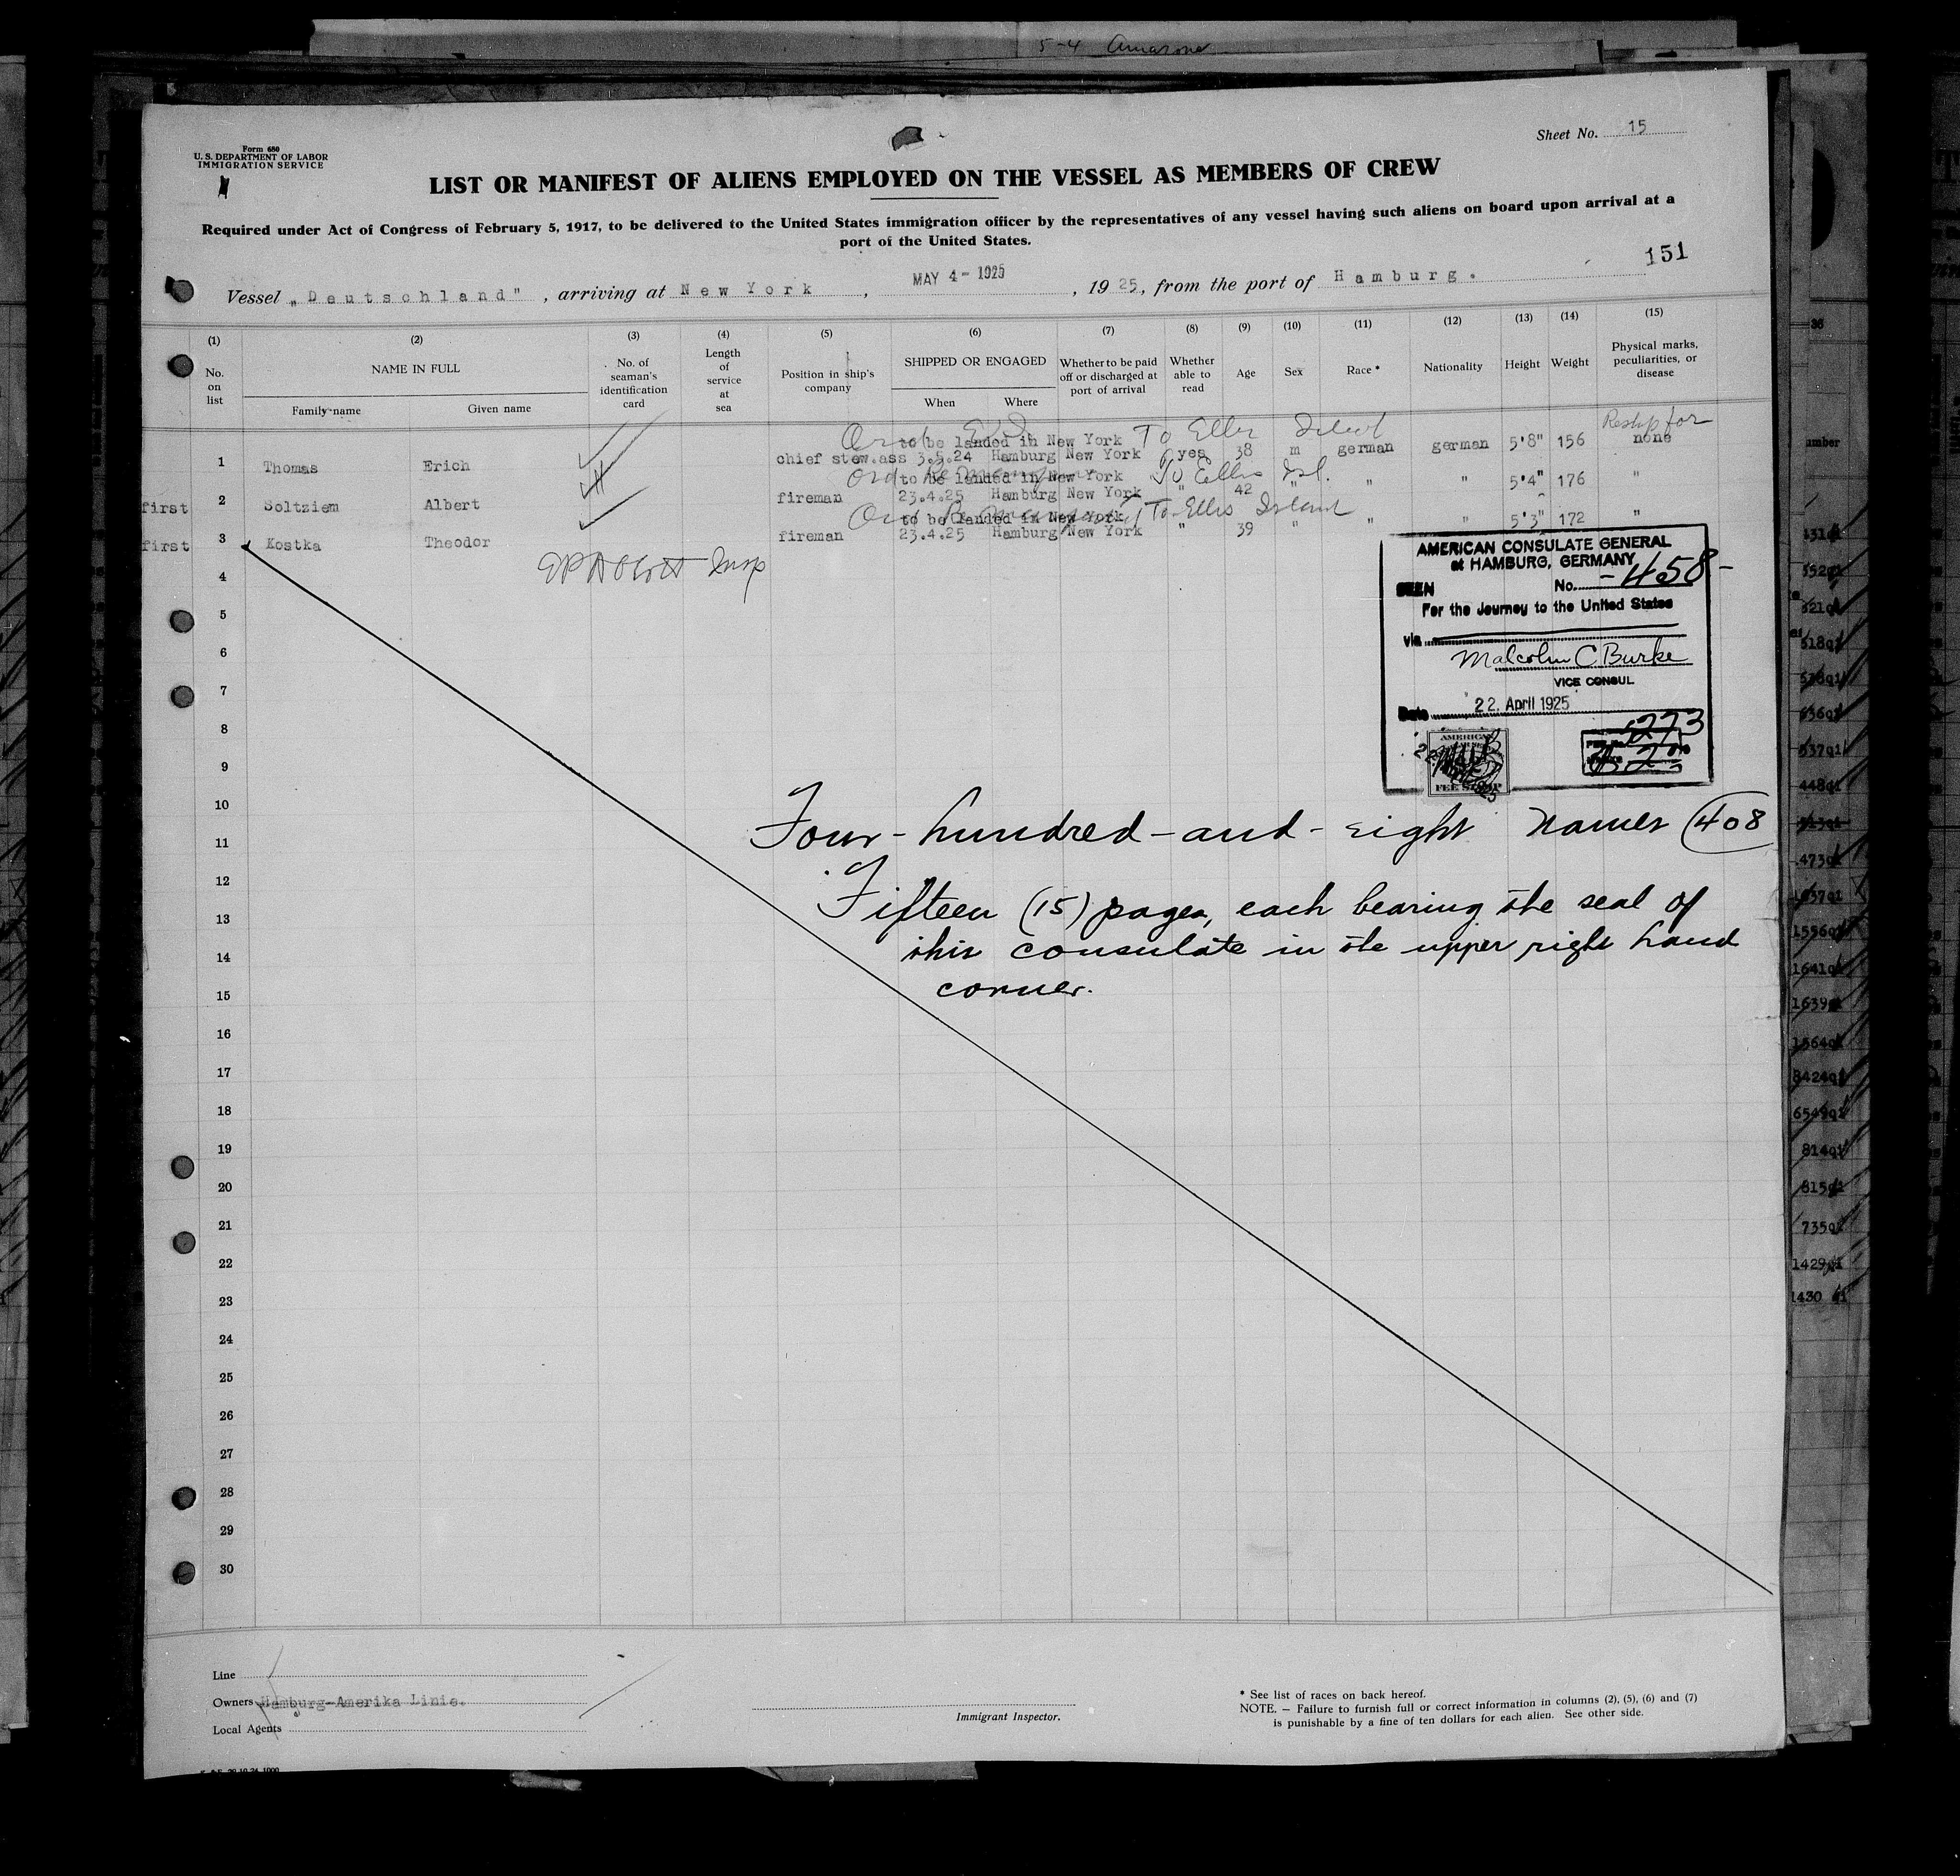 5-4 Amazone
Sheet No. 15
Form 680
U. S. DEPARTMENT OF LABOR
IMMIGRATION SERVICE
LIST OR MANIFEST OF ALIENS EMPLOYED ON THE VESSEL AS MEMBERS OF CREW
Required under Act of Congress of February 5, 1917, to be delivered to the United States immigration officer by the representatives of any vessel having such aliens on board upon arrival at a
port of the United States.
151
Vessel „Deutschland", arriving at New York, MAY 4- 1925, 1925, from the port of Hamburg.
(1) (2) (3) (4) (5) (6) (7) (8) (9) (10) (11) (12) (13) (14) (15)
No. on list
NAME IN FULL
Family name Given name
No. of seaman's identification card
Length of service at sea
Position in ship's company
SHIPPED OR ENGAGED
When Where
Whether to be paid off or discharged at port of arrival
Whether able to read
Age
Sex
Race *
Nationality
Height
Weight
Physical marks, peculiarities, or disease
to be landed in New York To Ellis Island
1 Thomas Erich chief stew.ass 3.5.24 Hamburg New York yes 38 m german german 5'8" 156 none
to be landed in New York To Ellis Isl.
first 2 Soltziem Albert fireman 23.4.25 Hamburg New York " 42 " " " 5'4" 176 "
to be landed in New York To Ellis Island
first 3 Kostka Theodor fireman 23.4.25 Hamburg New York " 39 " " " 5'3" 172 "
Insp
AMERICAN CONSULATE GENERAL
at HAMBURG, GERMANY
SEEN No. -458-
For the Journey to the United States
via
Malcolm C. Burke
VICE CONSUL
Date 22. April 1925
273
AMERICAN
FEE STAMP
4
5
6
7
8
9
10
11
12
13
14
15
16
17
18
19
20
21
22
23
24
25
26
27
28
29
30
Four-hundred-and-eight names (408
Fifteen (15) pages, each bearing the seal of
this consulate in the upper right hand
corner.
Line
Owners Hamburg-Amerika Linie.
Local Agents
Immigrant Inspector.
* See list of races on back hereof.
NOTE. — Failure to furnish full or correct information in columns (2), (5), (6) and (7)
is punishable by a fine of ten dollars for each alien. See other side.